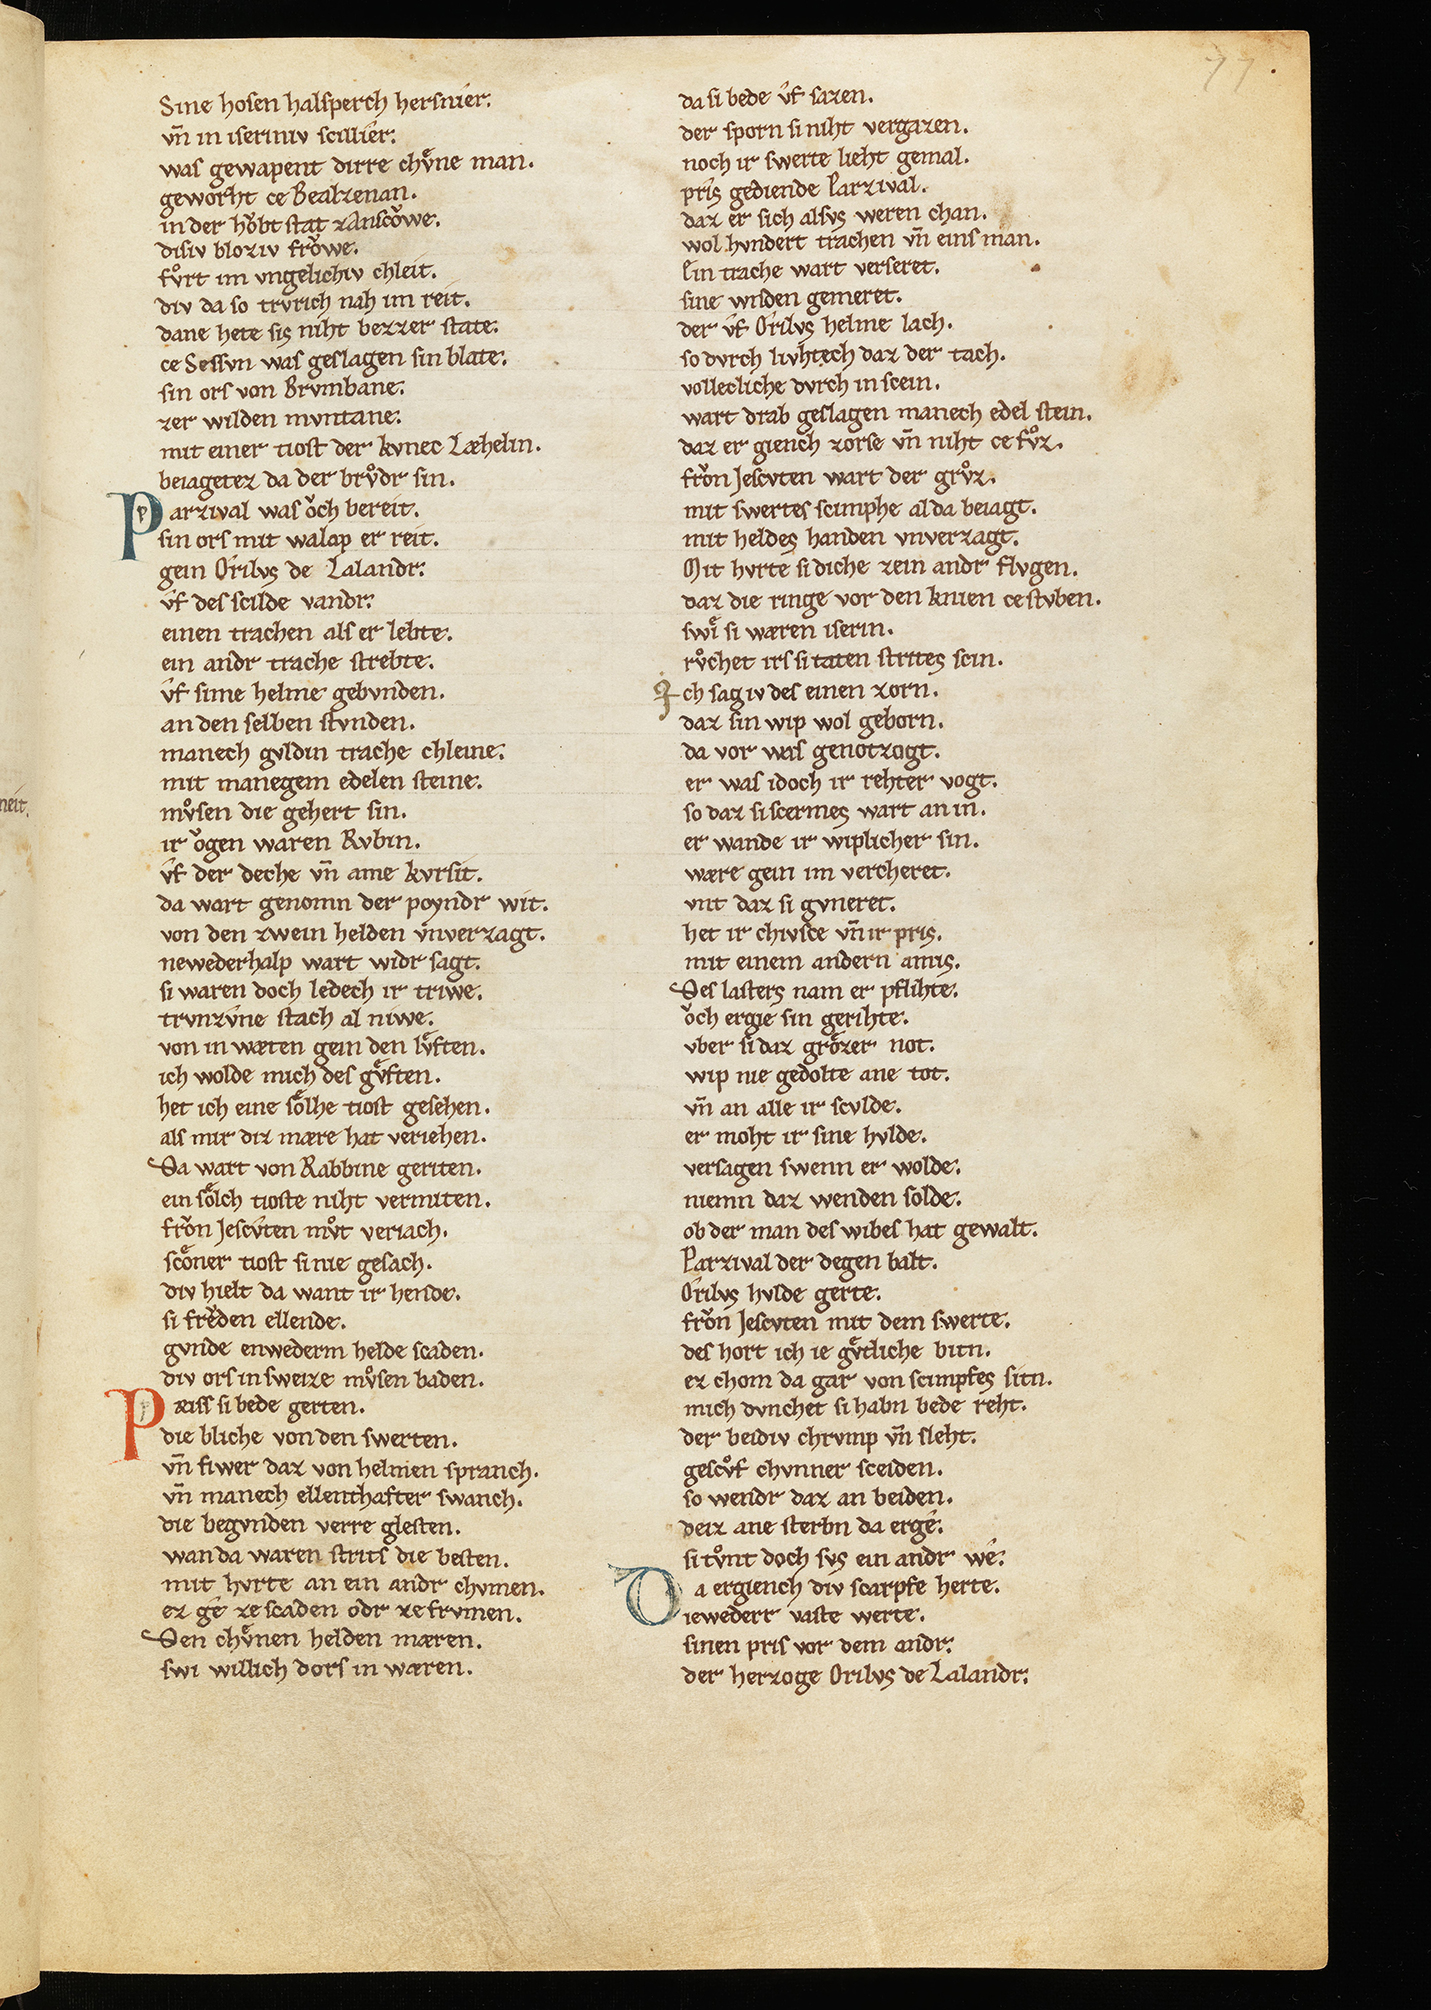 77.
Sine hosen halsperch hersnier.
vn̄ in iseriniv scillier.
was gewapent dirre chvͤne man.
geworht ce Bealzenan.
in der hoͮbt stat zAnscoͮwe.
disiv bloziv froͮwe.
fvͦrt im vngelichiv chleit.
div da so trvrich nah im reit.
dane hete sis niht bezzer state.
ce Sessvn was geslagen sin blate.
sin ors von Brvmbane.
zer wilden mvntane.
mit einer tiost der kvnec Læhelin.
beiagetez da der brvͦdr sin.
Parzival was oͮch bereit.
sin ors mit walap er reit.
gein Orilvs de Lalandr.
vf des scilde vandr.
einen trachen als er lebte.
ein andr trache strebte.
vf sime helme gebvnden.
an den selben stvnden.
manech gvldin trache chleine.
mit manegem edelen steine.
mvͦsen die gehert sin.
ir oͮgen waren Rvbin.
vf der deche vn̄ ame kvrsit.
da wart genomn der poyndr wit.
von den zwein helden vnverzagt.
newederhalp wart widr sagt.
si waren doch ledech ir triwe.
trvnzvne starch al niwe.
von in wæten gein den lvͤften.
ich wolde mich des gvͤften.
het ich eine soͤlhe tiost gesehen.
als mir diz mære hat veriehen.
Da wart von Rabbine geriten.
ein soͤlch tioste niht vermiten.
froͮn Jescvten mvͦt veriach.
scoͤner tiost si nie gesach.
div hielt da want ir hende.
si freͮden ellende.
gvnde enwederm helde scaden.
div ors in sweize mvͦsen baden.
Præiss si bede gerten.
die bliche von den swerten.
vn̄ fiwer daz von helmen spranch.
vn̄ manech ellenthafter swanch.
die begvnden verre glesten.
wan da waren strits die besten.
mit hvrte an ein andr chvmen.
ez ge ze scaden odr ze frvmen.
Den chvͤnen helden mæren.
swi willich dors in wæren.
da si bede vf sazen.
der sporn si niht vergazen.
noch ir swerte lieht gemal.
pris gediende Parzival.
daz er sich alsvs weren chan.
wol hvndert trachen vn̄ eins man.
Ein trache wart verseret.
sine wnden gemeret.
der vf Orilvs helme lach.
so dvrch livhtech daz der tach.
vollecliche dvrch in scein.
wart drab geslagen manech edel stein.
daz er giench zorse vn̄ niht ce fvͦz.
froͮn Jescvten wart der grvͦz.
mit swertes scimphe al da beiagt.
mit heldes handen vnverzagt.
Mit hvrte si diche zein andr flvgen.
daz die ringe vor den knien ce stvben.
swi si wæren iserin.
rvͦchet irs si taten strites scin.
Ich sag iv des einen zorn.
daz sin wip wol geborn.
da vor was genotzogt.
er was idoch ir rehter vogt.
so daz si scermes wart an in.
er wande ir wiplicher sin.
wære gein im vercheret.
vnt daz si gvneret.
het ir chivsce vn̄ ir pris.
mit einem andern amis.
Des lasters nam er pflihte.
oͮch ergie sin gerihte.
vber si daz groͤzer not.
wip nie gedolte ane tot.
vn̄ an alle ir scvlde.
er moht ir sine hvlde.
versagen swenn er wolde.
niemn daz wenden solde.
ob der man des wibes hat gewalt.
Parzival der degen balt.
Orilvs hvlde gerte.
froͮn Jescvten mit dem swerte.
des hort ich ie gvͤtliche bitn.
ez chom da gar von scimpfes sitn.
mich dvnchet si habn bede reht.
der beidiv chrvmp vn̄ sleht.
gescvͦf chvnner sceiden.
so wendr daz an beiden.
deiz ane sterbn da erge.
si tvͦnt doch svs ein andr we.
Da ergiench div scarpfe herte.
iewederr vaste werte.
sinen pris vor dem andr.
der herzoge Orilvs de Lalandr.